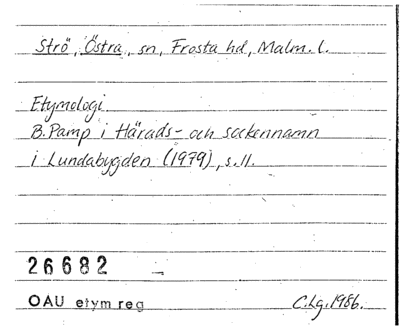 Strö, Östra, sn, Frosta hd, Malm. l.
Etymologi
B. Pamp i Härads- och sockennamn
i Lundabygden (1979), s. 11.
26682
OAU etym reg
C.Lg. 1986.